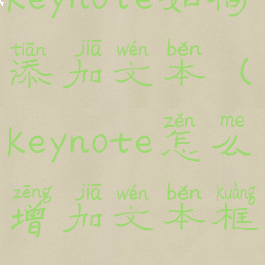 Keynote如何
tiān jiā wén běn
添加文本（
zěn me
Keynote怎么
zēng jiā wén běn kuàng
增加文本框